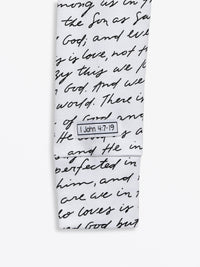 among us in
the Son as Sa
God, and eve
s is love, not
By this we
God. And we
world. There is
of God and
1 John 4:7-19
is and He in
perfected in
him, and
are we in
loves is
God but